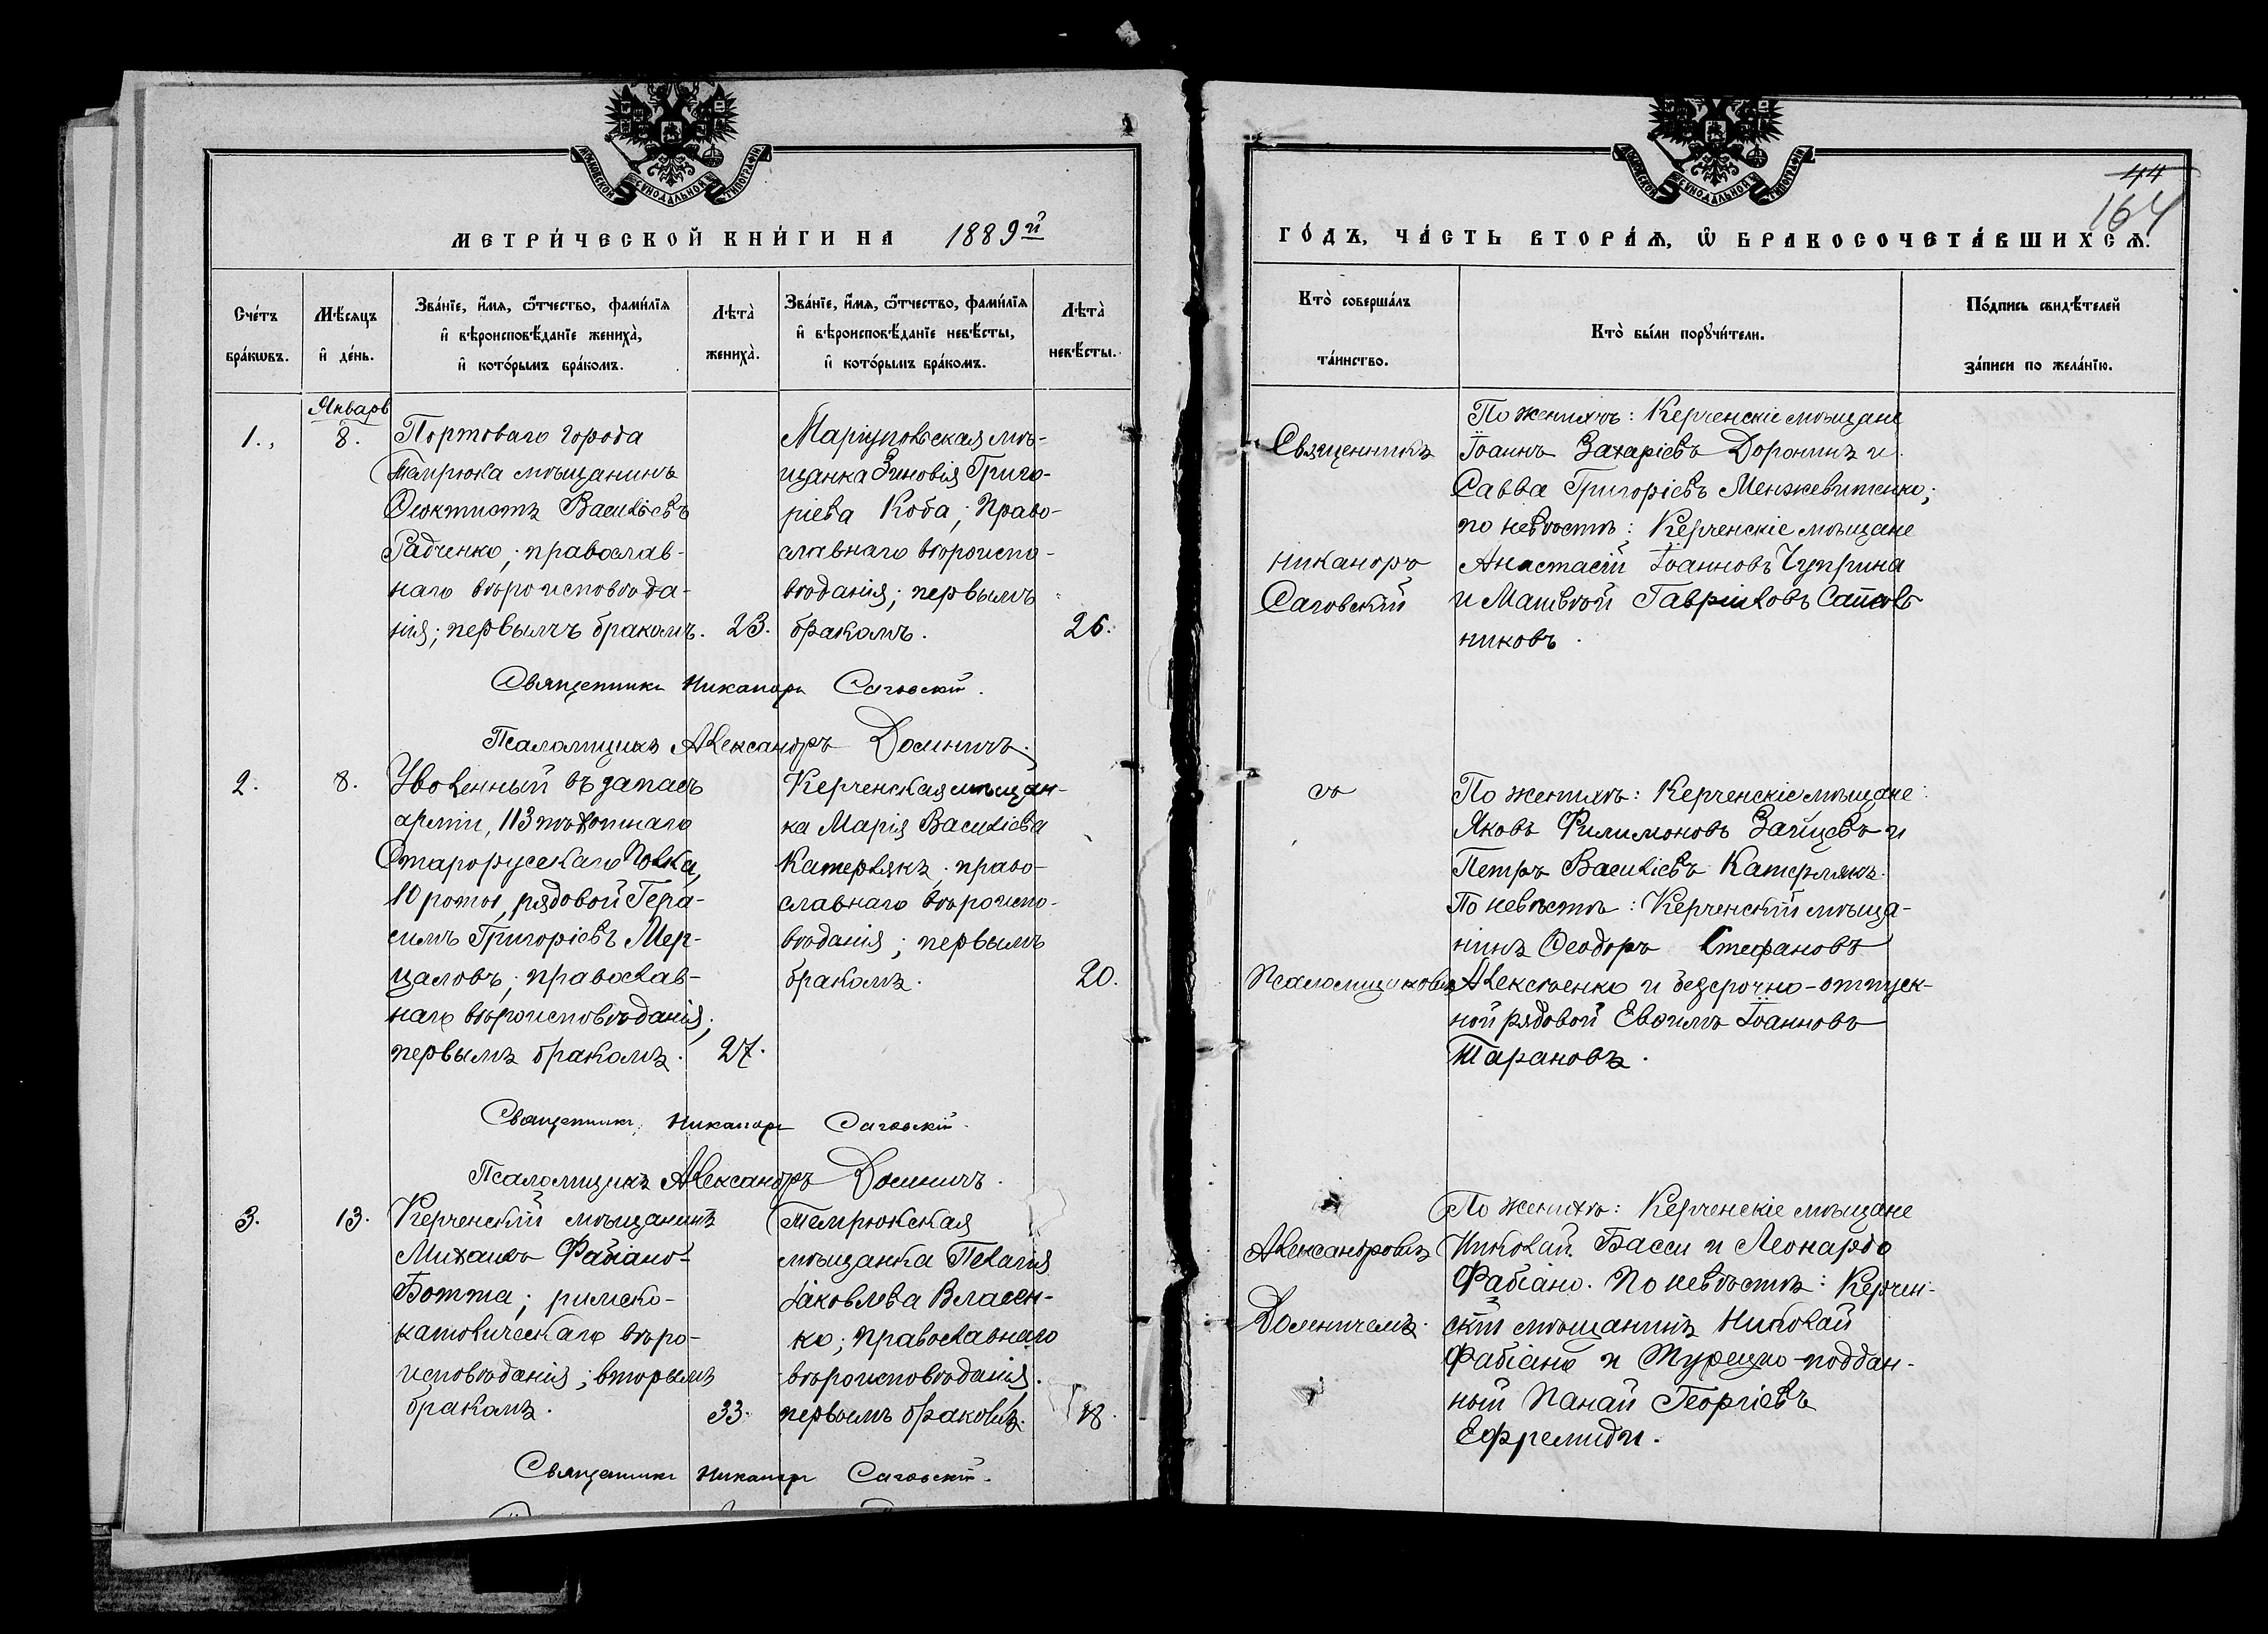 МОСКОВСКОЙ СѴНОДАЛЬНОЙ ТИПОГРАФІИ
МЕТРИ́ЧЕСКОЙ КНИ́ГИ НА 1889й
Сче́тъ бра́кѡвъ.
Мѣ́сяцъ и҆ де́нь.
Зва́нїе, и҆́мя, ѻ҆́тчество, фами́лїя
и҆ вѣроисповѣ́данїе жениха̀,
и҆ кото́рымъ бра́комъ.
Лѣта̀ жениха̀.
Зва́нїе, и҆́мя, ѻ҆́тчество, фами́лїя
и҆ вѣроисповѣ́данїе невѣ́сты,
и҆ кото́рымъ бра́комъ.
Лѣта̀ невѣ́сты.
Январь
1.
8.
Портоваго города
Темрюка мѣщанинъ
Ѳеоктистъ Василіевъ
Радченко; православ-
наго вѣроисповѣда-
нія; первымъ бракомъ.
23.
Маріупольская мѣ-
щанка Зиновія Григо-
ріева Коба; право-
славнаго вѣроиспо-
вѣданія; первымъ
бракомъ.
26.
Священникъ Никаноръ Саговскій.
Псаломщикъ Александръ Доменичъ.
2.
8.
Уволенный въ запасъ
арміи, 113 пѣхотнаго
Старорусскаго полка,
10 роты, рядовой Гера-
симъ Григоріевъ Мер-
цаловъ; православ-
наго вѣроисповѣданія;
первымъ бракомъ.
27.
Керченская мѣщан-
ка Марія Василіева
Катерлякъ; право-
славнаго вѣроиспо-
вѣданія; первымъ
бракомъ.
20.
Священникъ Никаноръ Саговскій.
Псаломщикъ Александръ Доменичъ.
3.
13.
Керченскій мѣщанинъ
Михаилъ Фабіано-
Ботта; римско-
католическаго вѣро-
исповѣданія; вторымъ
бракомъ.
33.
Темрюкская
мѣщанка Пелагія
Іаковлева Власен-
ко; православнаго
вѣроисповѣданія.
первымъ бракомъ.
18.
Священникъ Никаноръ Саговскій.
МОСКОВСКОЙ СѴНОДАЛЬНОЙ ТИПОГРАФІИ
44
164
ГО́ДЪ, ЧА́СТЬ ВТОРА́Ѧ, Ѽ БРАКОСОЧЕТА́ВШИХСѦ.
Кто̀ соверша́лъ
та́инство.
Кто̀ бы́ли порꙋчи́тели.
По́дпись свидѣ́телей
за́писи по жела́нїю.
Священникъ
Никаноръ
Саговскій
съ
Псаломщикомъ
Александромъ
Доменичемъ.
По женихѣ: Керченскіе мѣщане
Іоаннъ Захаріевъ Доронинъ и
Савва Григоріевъ Менжевитенко;
по невѣстѣ: Керченскіе мѣщане
Анастасій Іоанновъ Чуприна
и Матвѣй Гавріиловъ Сапож-
никовъ.
По женихѣ: Керченскіе мѣщане:
Яковъ Филимоновъ Зайцевъ и
Петръ Василіевъ Катерлякъ.
По невѣстѣ: Керченскій мѣща-
нинъ Ѳеодоръ Стефановъ
Алексѣенко и безсрочно-отпуск-
ной рядовой Евѳимъ Іоанновъ
Тарановъ.
По женихѣ: Керченскіе мѣщане
Николай Басси и Леонардо
Фабіано. По невѣстѣ: Керчен-
скій мѣщанинъ Николай
Фабіано и Турецко-поддан-
ный Панай Георгіевъ
Ефремиди.